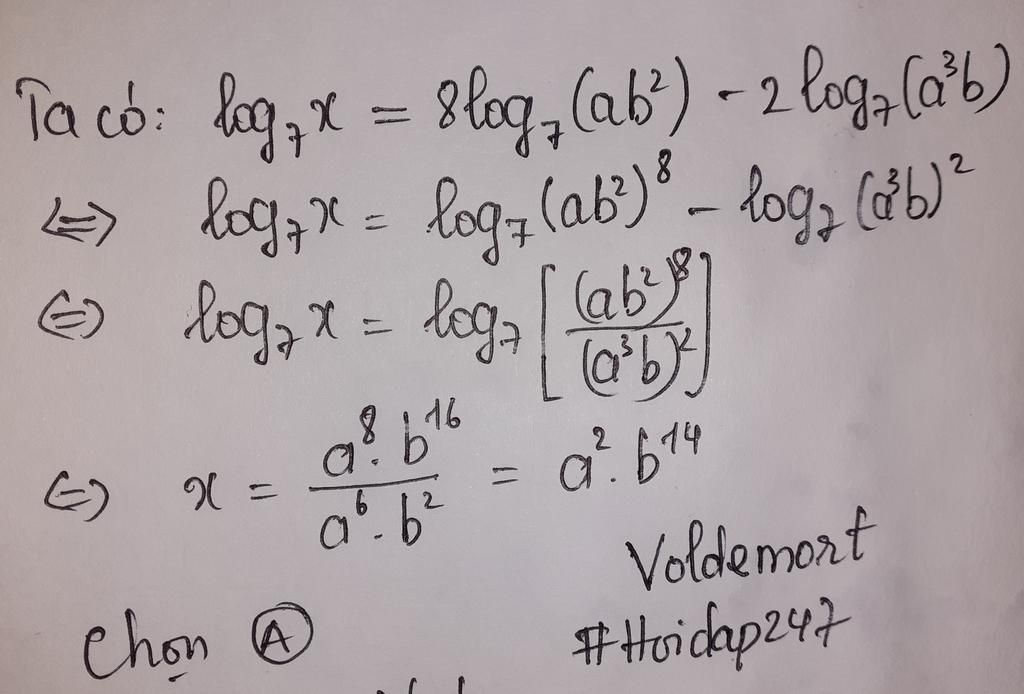 Ta có: log₇x = 8log₇(ab²) - 2log₇(a³b)
⇔ log₇x = log₇(ab²)⁸ - log₇(a³b)²
⇔ log₇x = log₇[(ab²)⁸/(a³b)²]
⇔ x = a⁸.b¹⁶/a⁶.b² = a².b¹⁴
Voldemort
Chọn Ⓐ #Hoidap247